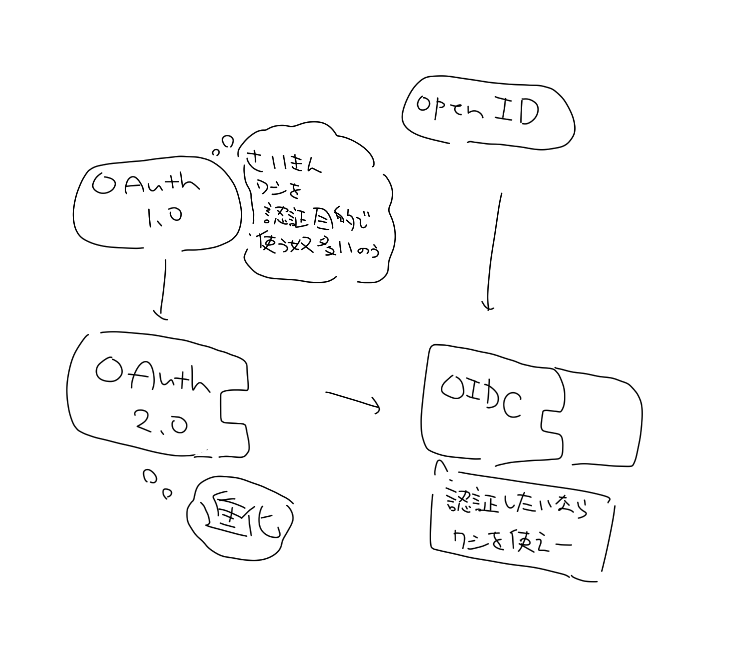 Open ID
OAuth
1.0
さいきん
ワシを
認証目的で
使う奴多いのう
OAuth
2.0
OIDC
進化
認証したいなら
ワシを使えー